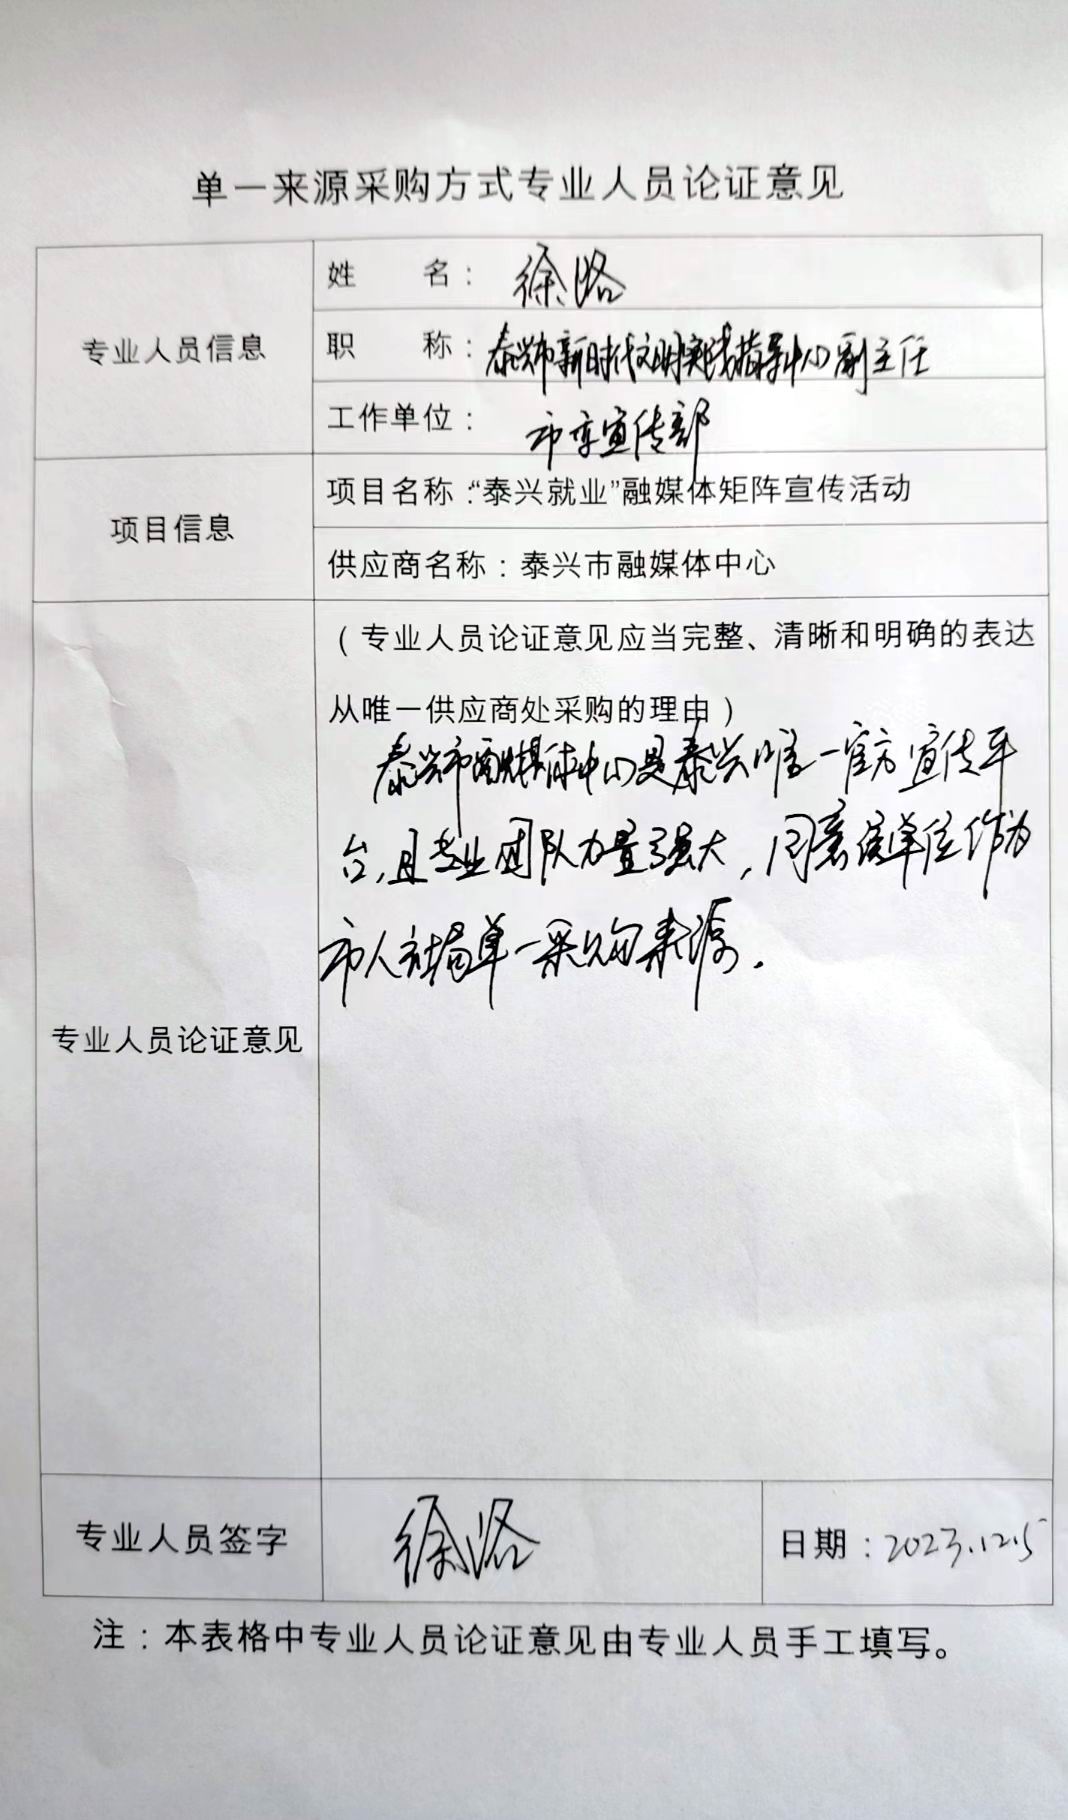 单一来源采购方式专业人员论证意见
专业人员信息
姓 名：徐洛
职 称：泰兴市新时代文明实践指导中心副主任
工作单位：市委宣传部
项目信息
项目名称：“泰兴就业”融媒体矩阵宣传活动
供应商名称：泰兴市融媒体中心
专业人员论证意见
（专业人员论证意见应当完整、清晰和明确的表达
从唯一供应商处采购的理由）
泰兴市融媒体中心是泰兴唯一官方宣传平
台，且专业团队力量强大，同意该单位作为
市人社局单一采购来源.
专业人员签字
徐洛
日期：2023.12.5
注：本表格中专业人员论证意见由专业人员手工填写。